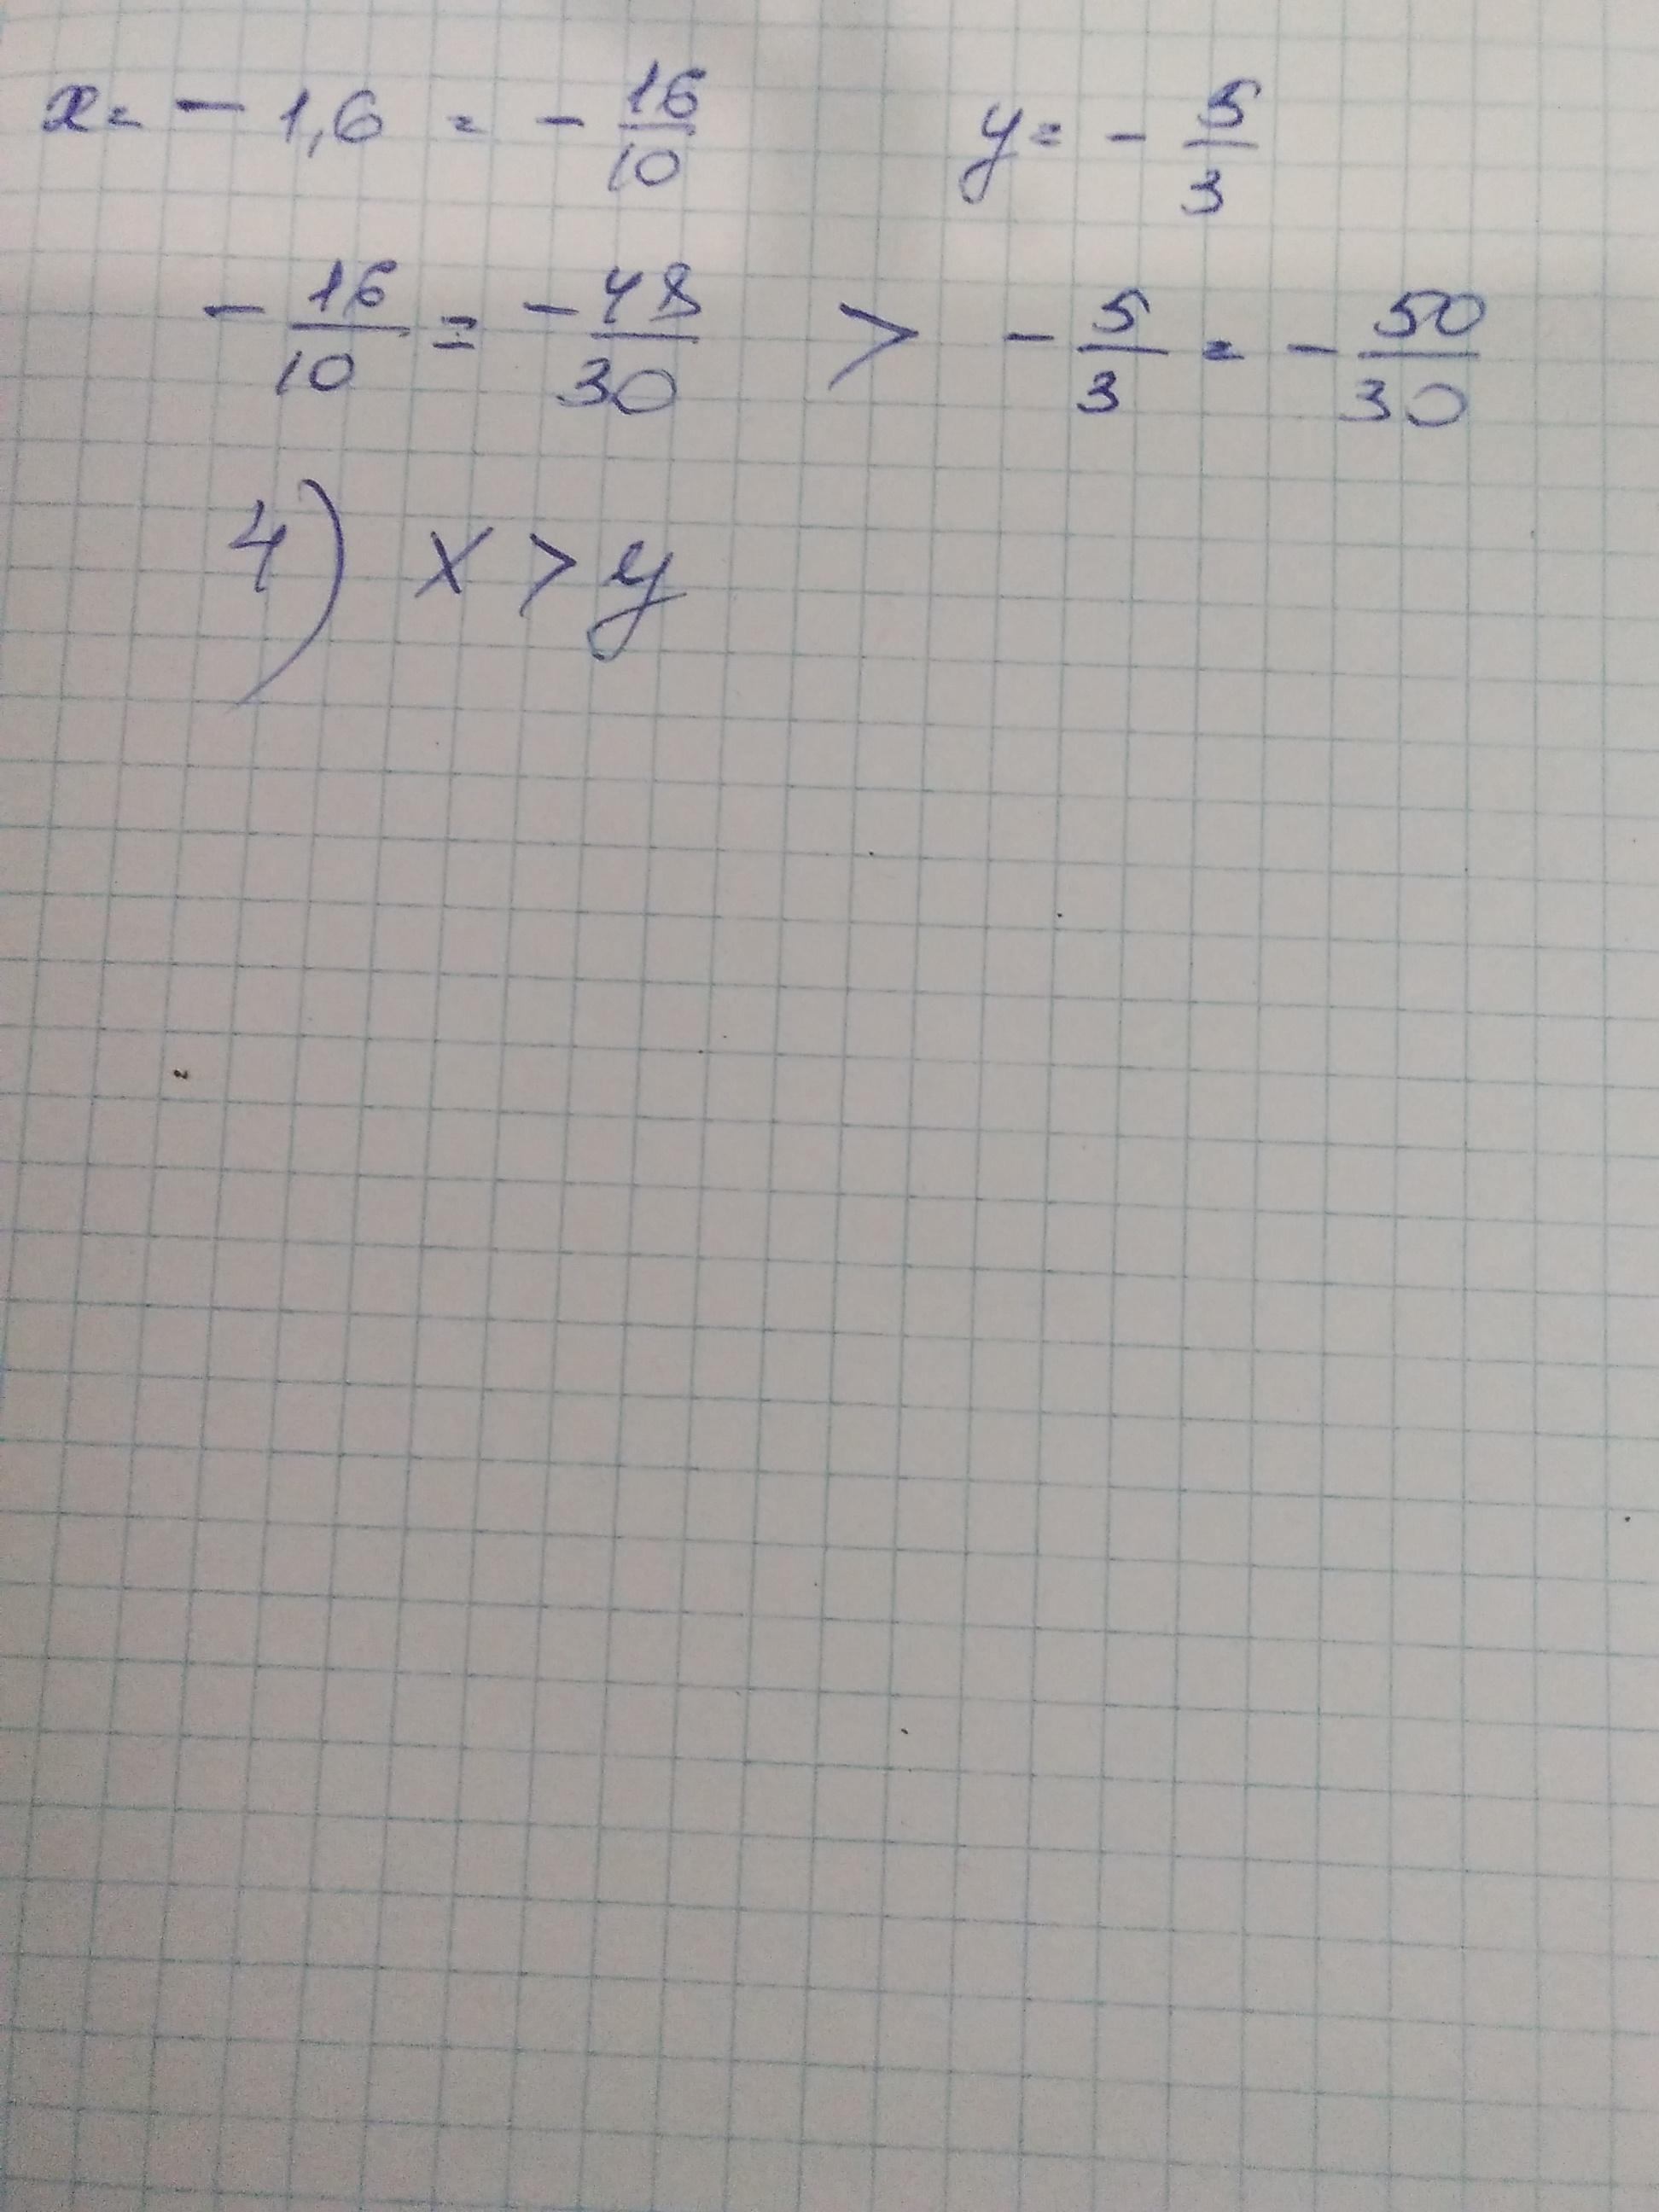 x = - 1,6 = - 16/10 y = - 5/3
- 16/10 = - 48/30 > - 5/3 = - 50/30
4) x > y